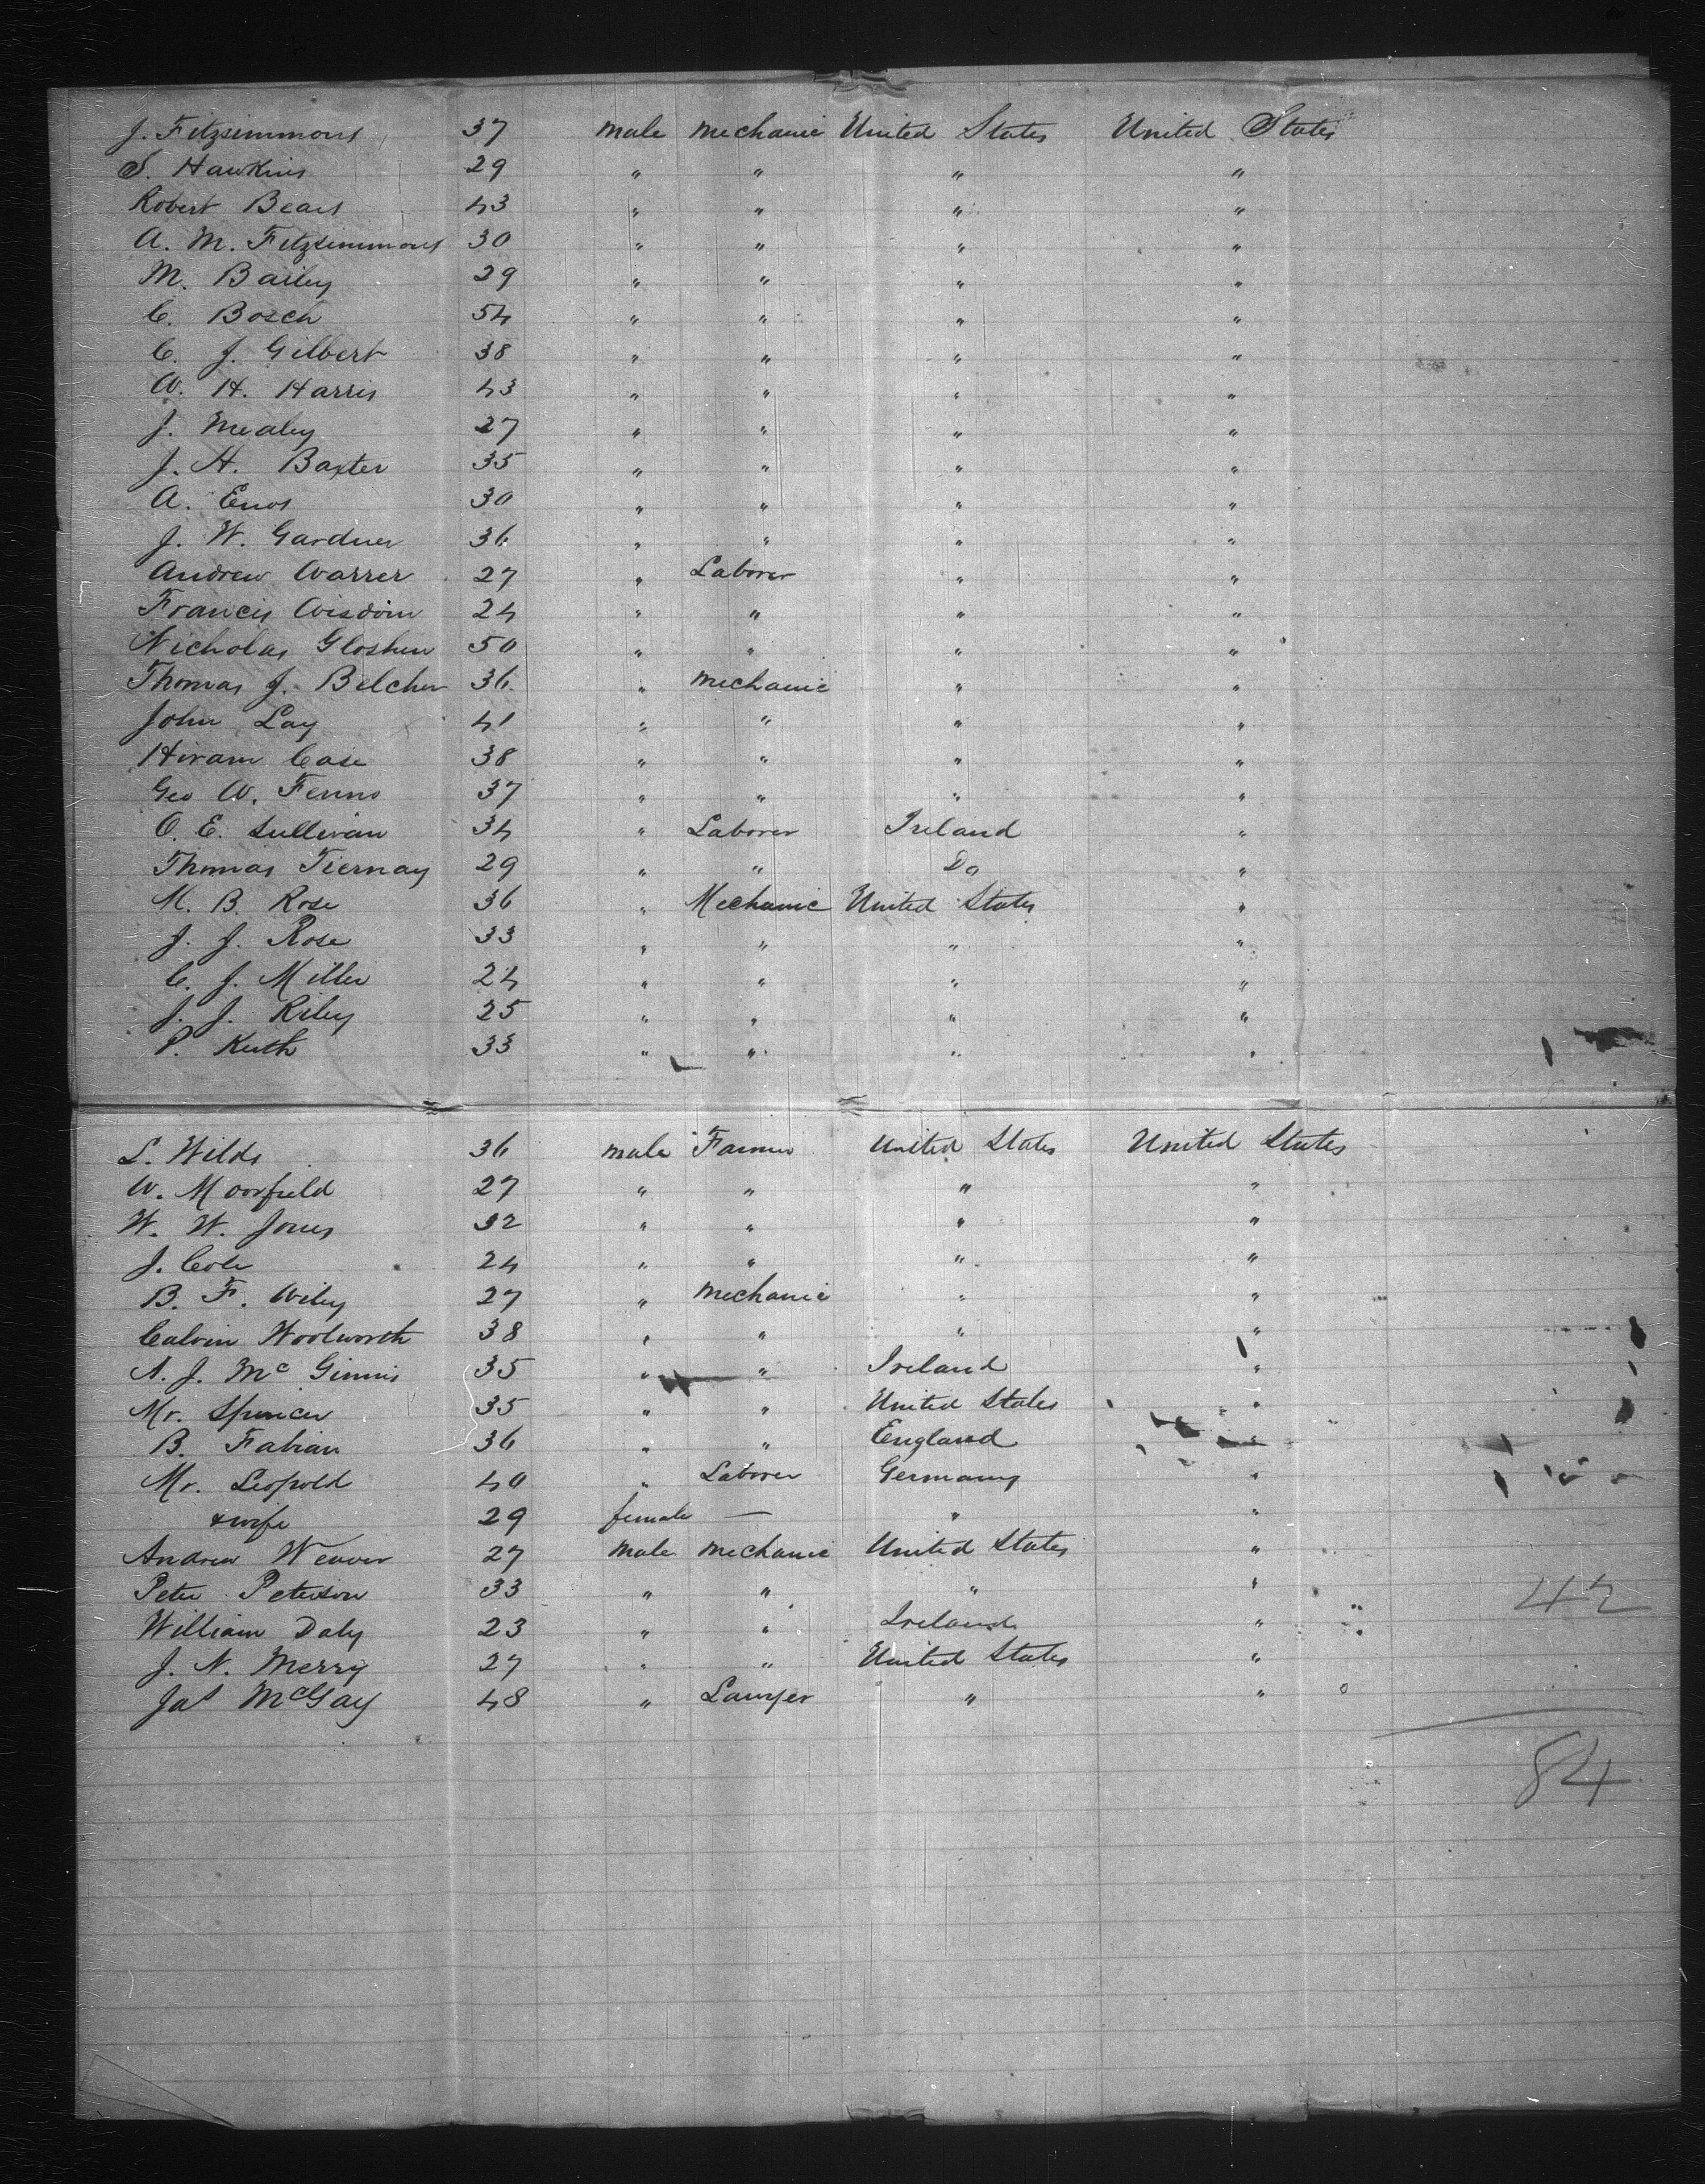 J. Fitzsimmons 37 male mechanic United States United States
S. Hawkins 29 " " " "
Robert Bears 43 " " " "
A. M. Fitzsimmons 30 " " " "
M. Bailey 29 " " " "
C. Bosch 54 " " " "
C. J. Gilbert 38 " " " "
W. H. Harris 43 " " " "
J. Mealey 27 " " " "
J. H. Baxter 35 " " " "
A. Enos 30 " " " "
J. W. Gardner 36 " " " "
Andrew Warrer 27 " Laborer " "
Francis Wisdom 24 " " " "
Nicholas Gloshen 50 " " " "
Thomas J. Belcher 36 " mechanic " "
John Lay 41 " " " "
Hiram Case 38 " " " "
Geo W. Fenno 37 " " " "
O. E. Sullivan 34 " Laborer Ireland "
Thomas Tiernay 29 " " Do "
M. B. Rose 36 " Mechanic United States "
J. J. Rose 33 " " " "
C. J. Miller 24 " " " "
J. J. Riley 25 " " " "
P. Keith 33 " " " "
L. Wilds 36 male Farmer United States United States
W. Moorfield 27 " " " "
W. W. Jones 32 " " " "
J. Cole 24 " " " "
B. F. Wiley 27 " mechanic " "
Calvin Woolworth 38 " " " "
A. J. McGinnis 35 " " Ireland "
Mr. Spencer 35 " " United States "
B. Fabian 36 " " England "
Mr. Leopold 40 " Laborer Germany "
& wife 29 female — " "
Andrew Weaver 27 male mechanic United States "
Peter Peterson 33 " " " "
William Daly 23 " " Ireland "
J. N. Merry 27 " " United States "
Jas McGay 48 " Lawyer " "
42
84